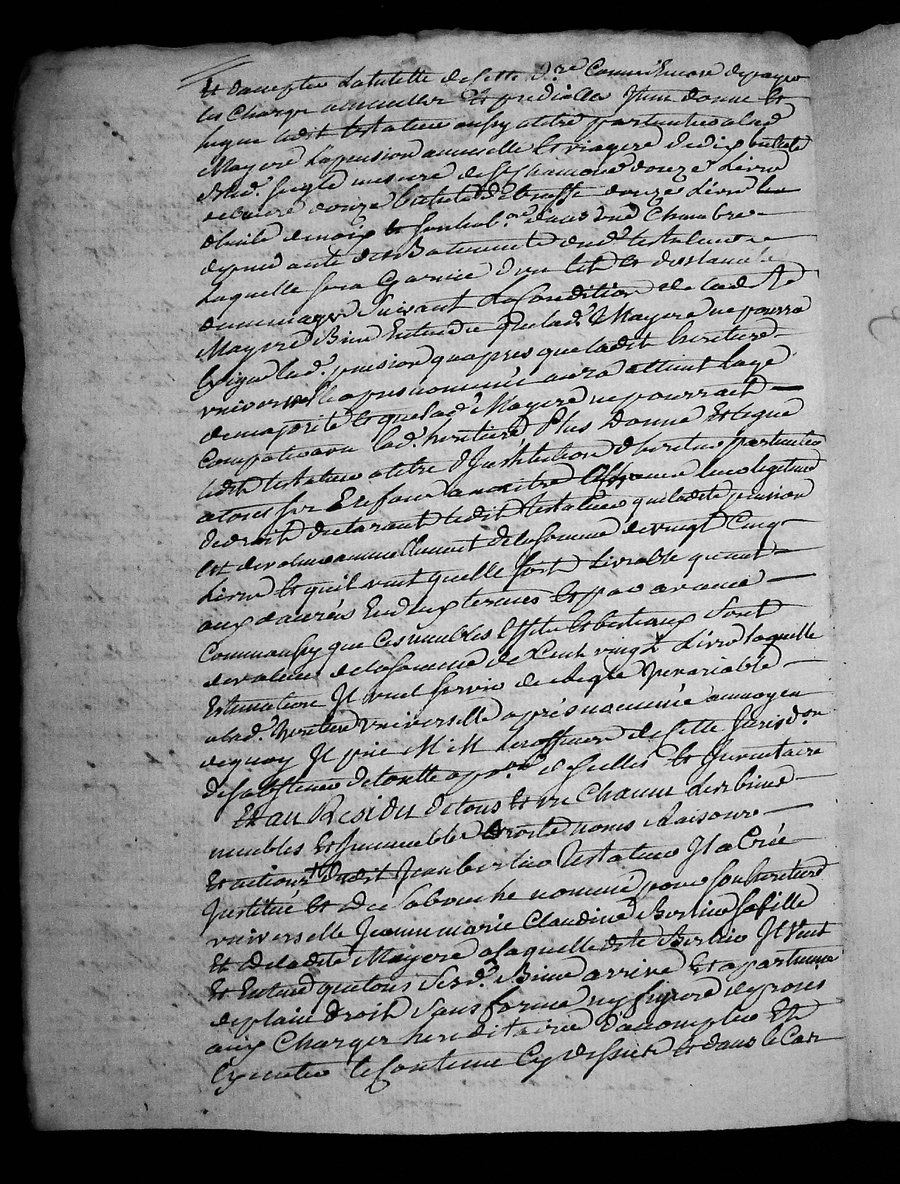 Et daccepter La tutelle de cette d.re Comme Encore de payer
les Charges annuelles Et prediales Item donne Et
legue ledit testateur aussy a titre particulier a lad.
Mayere La pension annuelle Et viagere de dix bichets
Bled seigle mesure de st chamond douze Livres
de beure douze Livres
d'huile de noix Et son hab.on dans Une Chambre
dependante des Batiments dud. testateur
Laquelle sera Garnie d'un lit Et d'ustancils
de menager Suivant La Condition de ladite
Mayere Bien Entendu que lad. Mayere ne pourra
Exiger lad. pension qu'apres que ladite heritiere
universelle apres nommée aura atteint Lage
de majorité Et que lad. Mayere ne pourrait
Compatir avec lad. heritiere Plus Donne Et legue
ledit testateur a titre d'Institution d'heritier particulier
a tous ses Enfans a naitre Leur legitime
de droit declarant ledit testateur que ladite pension
est de valeur annuellement de la somme de vingt Cinq
Livres Et qu'il veut quelle soit Livrable quant
aux danrées En deux termes Et par avance
Comme aussy que Ces meubles Effets Et bestiaux sont
de valeur de la somme de Cent vingt Livres laquelle
Estimation Il veut servir de Regle Invariable
a lad. heritiere Universelle après nommée au moyen
de quoy Il prie M M Les officiers de Cette Jurisd.on
de s'abstenir de toutte app.on de scellés Et Inventaire
Et au Residu de tous Et un Chacun Ses biens
meubles Et Immeubles Droits noms Raisons
Et actions Ledit Jean bertine Testateur Il a Crée
Institue Et de sa bouche nommé pour son heritiere
universelle Jeanne marie Claudine Bertine sa fille
Et de ladite Mayere a laquelle dite Bertine Il Veut
Et Entend que tous Sesd. Biens arrive Et apartienne
de plain droit Sans forme ny figure de proces
aux Charges hereditaires d'accomplir Et
Executer le Contenu Cy dessus Et dans le Cas